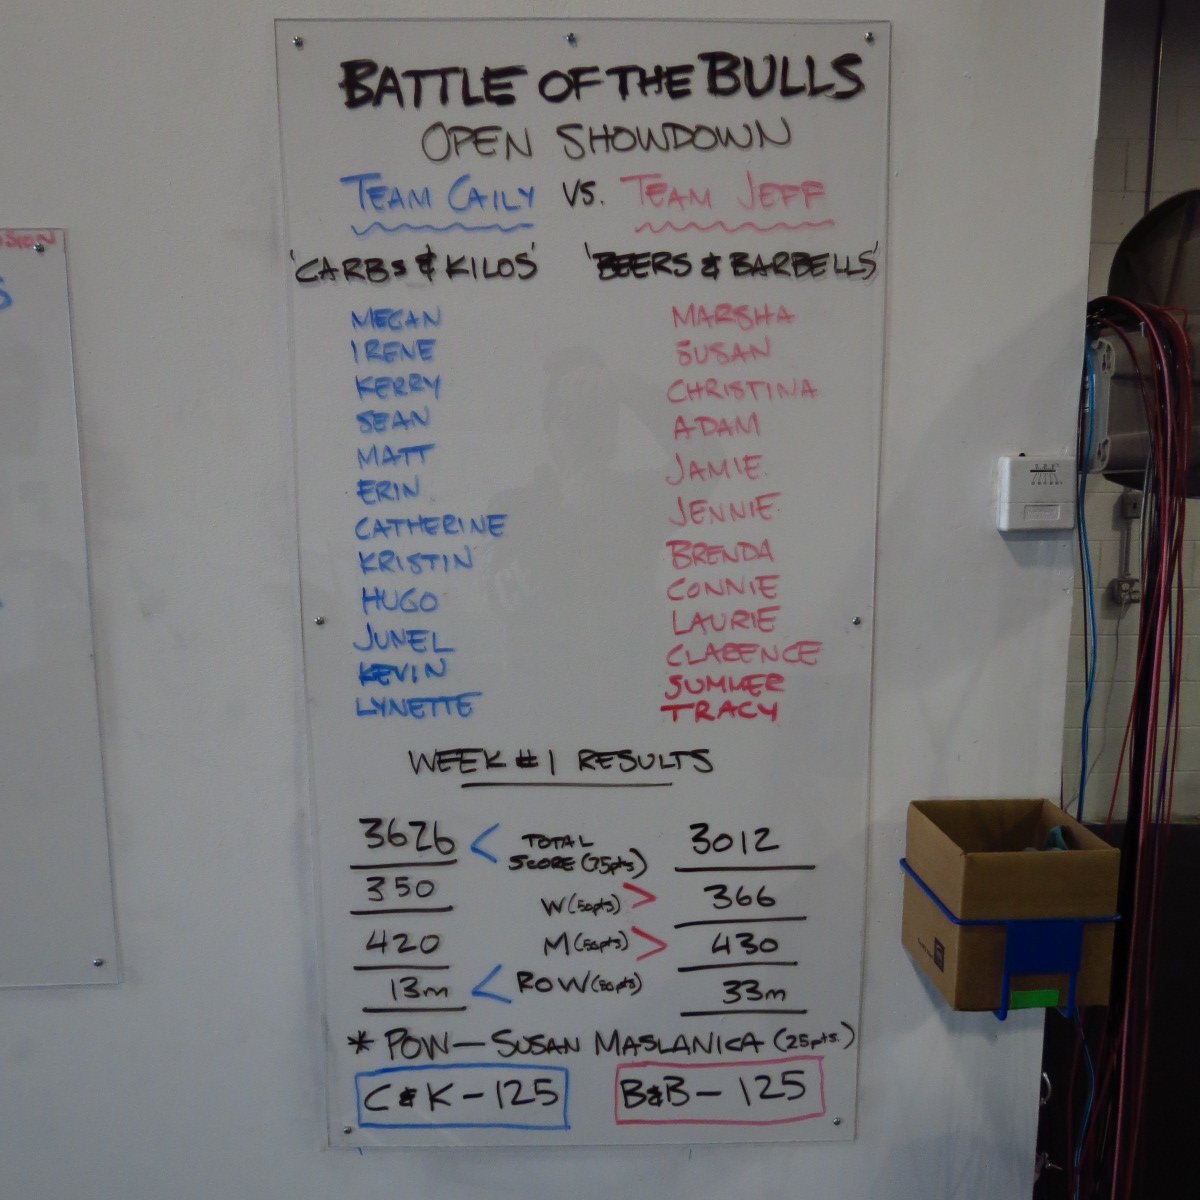 BATTLE OF THE BULLS
OPEN SHOWDOWN
TEAM CAILY VS. TEAM JEFF
'CARBS & KILOS' 'BEERS & BARBELLS'
MEGAN MARSHA
IRENE SUSAN
KERRY CHRISTINA
SEAN ADAM
MATT JAMIE
ERIN JENNIE
CATHERINE BRENDA
KRISTIN CONNIE
HUGO LAURIE
JUNEL CLARENCE
KEVIN SUMMER
LYNETTE TRACY
WEEK #1 RESULTS
3626 < TOTAL SCORE (75pts) 3012
350 W (50pts) > 366
420 M (50pts) > 430
13m < ROW (50pts) 33m
* POW — SUSAN MASLANICA (25pts.)
C & K - 125 B&B - 125